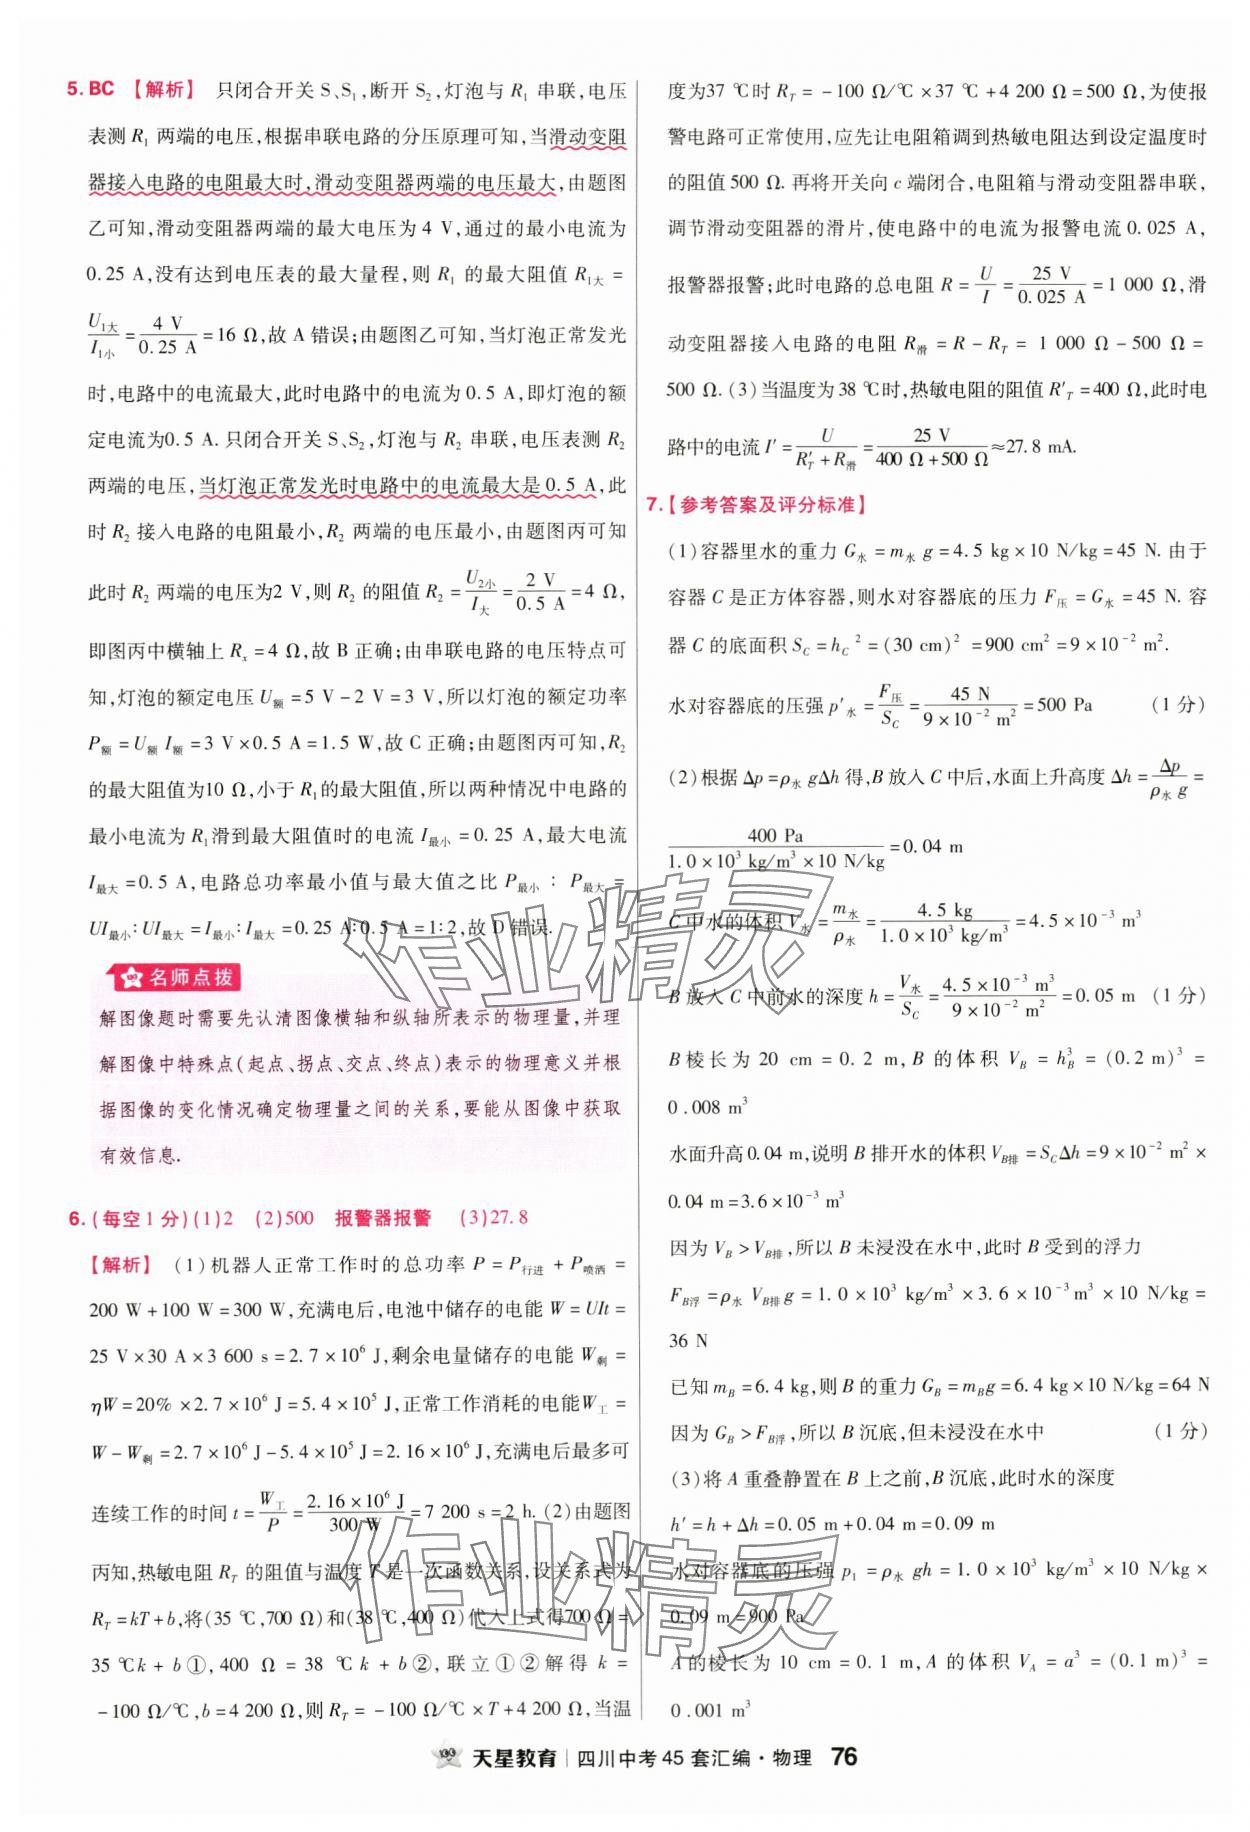 5. BC 【解析】 只闭合开关 S、S₁,断开 S₂,灯泡与 R₁ 串联,电压
表测 R₁ 两端的电压,根据串联电路的分压原理可知,当滑动变阻
器接入电路的电阻最大时,滑动变阻器两端的电压最大,由题图
乙可知,滑动变阻器两端的最大电压为 4 V,通过的最小电流为
0.25 A,没有达到电压表的最大量程,则 R₁ 的最大阻值 R₁大 =
U₁大/I₁小 = 4 V/0.25 A = 16 Ω,故 A 错误;由题图乙可知,当灯泡正常发光
时,电路中的电流最大,此时电路中的电流为 0.5 A,即灯泡的额
定电流为0.5 A. 只闭合开关 S、S₂,灯泡与 R₂ 串联,电压表测 R₂
两端的电压,当灯泡正常发光时电路中的电流最大是 0.5 A,此
时 R₂ 接入电路的电阻最小,R₂ 两端的电压最小,由题图丙可知
此时 R₂ 两端的电压为2 V,则 R₂ 的阻值 R₂ = U₂小/I大 = 2 V/0.5 A = 4 Ω,
即图丙中横轴上 Rₓ = 4 Ω,故 B 正确;由串联电路的电压特点可
知,灯泡的额定电压 U额 = 5 V - 2 V = 3 V,所以灯泡的额定功率
P额 = U额 I额 = 3 V × 0.5 A = 1.5 W,故 C 正确;由题图丙可知,R₂
的最大阻值为10 Ω,小于 R₁的最大阻值,所以两种情况中电路的
最小电流为 R₁滑到最大阻值时的电流 I最小 = 0.25 A,最大电流
I最大 = 0.5 A,电路总功率最小值与最大值之比 P最小 : P最大 =
UI最小:UI最大 = I最小:I最大 = 0.25 A:0.5 A = 1:2,故 D 错误.
名师点拨
解图像题时需要先认清图像横轴和纵轴所表示的物理量,并理
解图像中特殊点(起点、拐点、交点、终点)表示的物理意义并根
据图像的变化情况确定物理量之间的关系,要能从图像中获取
有效信息.
6. (每空 1 分)(1)2 (2)500 报警器报警 (3)27.8
【解析】 (1)机器人正常工作时的总功率 P = P行进 + P喷洒 =
200 W + 100 W = 300 W,充满电后,电池中储存的电能 W = UIt =
25 V × 30 A × 3 600 s = 2.7 × 10⁶ J,剩余电量储存的电能 W剩 =
ηW = 20% × 2.7 × 10⁶ J = 5.4 × 10⁵ J,正常工作消耗的电能W工 =
W - W剩 = 2.7 × 10⁶ J - 5.4 × 10⁵ J = 2.16 × 10⁶ J,充满电后最多可
连续工作的时间 t = W工/P = 2.16 × 10⁶ J/300 W = 7 200 s = 2 h. (2)由题图
丙知,热敏电阻 R_T 的阻值与温度 T 是一次函数关系,设关系式为
R_T = kT + b,将(35 ℃,700 Ω)和(38 ℃,400 Ω)代入上式得700 Ω =
35 ℃k + b ①,400 Ω = 38 ℃k + b ②,联立①②解得 k =
-100 Ω/℃,b = 4 200 Ω,则 R_T = -100 Ω/℃ × T + 4 200 Ω,当温
度为37 ℃时 R_T = -100 Ω/℃ × 37 ℃ + 4 200 Ω = 500 Ω,为使报
警电路可正常使用,应先让电阻箱调到热敏电阻达到设定温度时
的阻值 500 Ω. 再将开关向 c 端闭合,电阻箱与滑动变阻器串联,
调节滑动变阻器的滑片,使电路中的电流为报警电流 0.025 A,
报警器报警;此时电路的总电阻 R = U/I = 25 V/0.025 A = 1 000 Ω,滑
动变阻器接入电路的电阻 R滑 = R - R_T = 1 000 Ω - 500 Ω =
500 Ω. (3)当温度为 38 ℃时,热敏电阻的阻值 R′_T = 400 Ω,此时电
路中的电流 I′ = U/(R′_T + R滑) = 25 V/(400 Ω + 500 Ω) ≈ 27.8 mA.
7. 【参考答案及评分标准】
(1)容器里水的重力 G水 = m水 g = 4.5 kg × 10 N/kg = 45 N. 由于
容器 C 是正方体容器,则水对容器底的压力 F压 = G水 = 45 N. 容
器 C 的底面积 S_C = h_C² = (30 cm)² = 900 cm² = 9 × 10⁻² m².
水对容器底的压强 p′水 = F压/S_C = 45 N/(9 × 10⁻² m²) = 500 Pa (1 分)
(2)根据 Δp = ρ水 gΔh 得,B 放入 C 中后,水面上升高度 Δh = Δp/(ρ水 g) =
400 Pa/(1.0 × 10³ kg/m³ × 10 N/kg) = 0.04 m
C 中水的体积 V水 = m水/ρ水 = 4.5 kg/(1.0 × 10³ kg/m³) = 4.5 × 10⁻³ m³
B 放入 C 中前水的深度 h = V水/S_C = 4.5 × 10⁻³ m³/(9 × 10⁻² m²) = 0.05 m (1 分)
B 棱长为 20 cm = 0.2 m,B 的体积 V_B = h_B³ = (0.2 m)³ =
0.008 m³
水面升高 0.04 m,说明 B 排开水的体积 V_B排 = S_CΔh = 9 × 10⁻² m² ×
0.04 m = 3.6 × 10⁻³ m³
因为 V_B > V_B排,所以 B 未浸没在水中,此时 B 受到的浮力
F_B浮 = ρ水 V_B排 g = 1.0 × 10³ kg/m³ × 3.6 × 10⁻³ m³ × 10 N/kg =
36 N
已知 m_B = 6.4 kg,则 B 的重力 G_B = m_B g = 6.4 kg × 10 N/kg = 64 N
因为 G_B > F_B浮,所以 B 沉底,但未浸没在水中 (1 分)
(3)将 A 重叠静置在 B 上之前,B 沉底,此时水的深度
h′ = h + Δh = 0.05 m + 0.04 m = 0.09 m
水对容器底的压强 p₁ = ρ水 gh = 1.0 × 10³ kg/m³ × 10 N/kg ×
0.09 m = 900 Pa
A 的棱长为 10 cm = 0.1 m,A 的体积 V_A = a³ = (0.1 m)³ =
0.001 m³
作业精灵
作业精灵
天星教育 | 四川中考 45 套汇编·物理 76